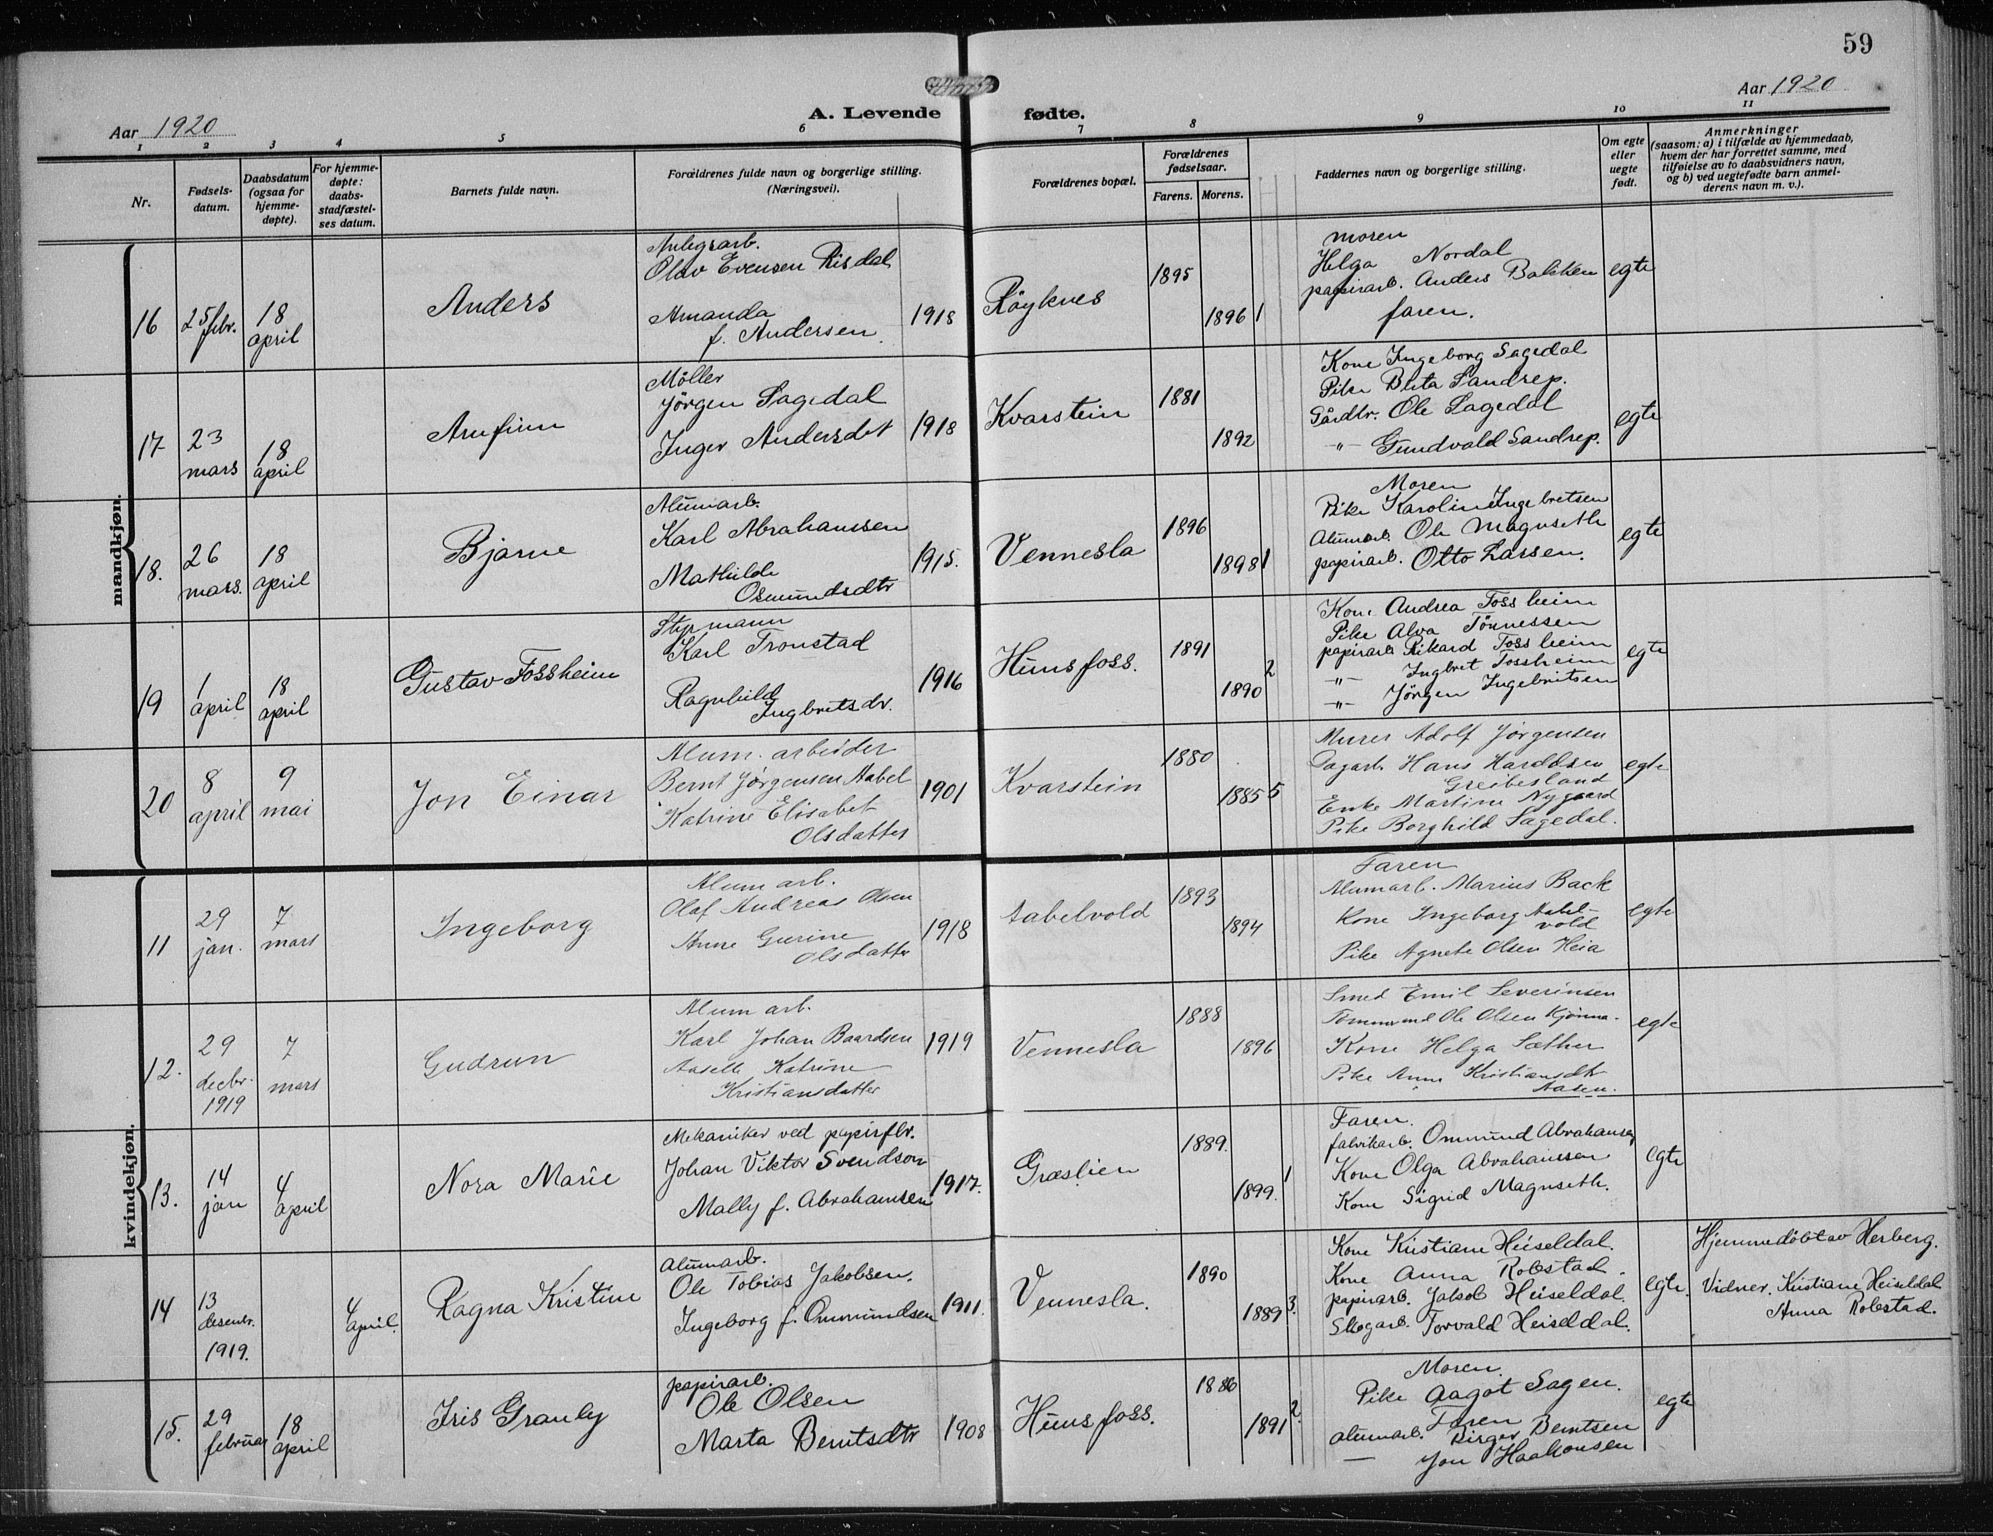 59
Aar 1920
A. Levende fødte.
Aar 1920
1 2 3 4 5 6 7 8 9 10 11
Nr.
Fødsels-
datum.
Daabsdatum
(ogsaa for
hjemme-
døpte).
For hjemme-
døpte:
daabs-
stadfæstel-
ses datum.
Barnets fulde navn.
Forældrenes fulde navn og borgerlige stilling.
(Næringsvei).
Forældrenes bopæl.
Forældrenes
fødselsaar.
Farens. Morens.
Faddernes navn og borgerlige stilling.
Om egte
eller
uegte
født.
Anmerkninger
(saasom: a) i tilfælde av hjemmedaab,
hvem der har forrettet samme, med
tilføielse av to daabsvidners navn,
og b) ved uegtefødte barn anmel-
derens navn m. v.).
mandkjøn.
16
25 febr.
18
april
Anders
Anlegsarb.
Olav Evensen Risdal
Amanda
f. Andersen
1918
Røyknes
1895
1896
1
moren
Helga Nordal
papirarb. Anders Bakken
faren.
egte
17
23
mars
18
april
Arnfinn
Møller
Jörgen Sagedal
Inger Andersdot
1918
Kvarstein
1881
1892
Kone Ingeborg Sagedal
Pike Berta Sandrep.
Gårdbr. Ole Sagedal
-"- Gundvald Sandrep.
egte
18.
26
mars.
18
april
Bjarne
Alumarb.
Karl Abrahamsen
Mathilde
Osmundsdtr
1915.
Vennesla
1896
1898
1
Moren
Pike Karolin Ingebretsen
Alumarb. Ole Magnseth
papirarb. Otto Larsen.
egte
19
1
april
18
april
Gustav Fossheim
Styrmann
Karl Tronstad
Ragnhild
Ingbretsdr.
1916
Hunsfoss.
1891
1890
2
Kone Andrea Fossheim
Pike Alva Tönnessen
papirarb. Rikard Fossheim
-"- Ingbret Fossheim
-"- Jörgen Ingebritsen
egte
20
8
april
9
mai
Jon Einar
Alum. arbeider
Bernt Jørgensen Aabel
Katrine Elisabet
Olsdatter
1901
Kvarstein
1880
1885
5
Murer Adolf Jørgensen
Dagarb. Hans
Greibesland
Enke Martine Nygaard
Pike Borghild Sagedal.
egte
kvindekjøn.
11
29
jan.
7
mars
Ingeborg
Alum arb.
Olaf Andreas Olsen
Anne Gurine
Olsdatter
1918
Aabelvold
1893
1894
Faren
Alumarb. Marius Back
Kone Ingeborg Aabel-
vold
Pike Agnete Olsen Heia
egte
12.
29
decbr.
1919
7
mars
Gudrun
Alum arb.
Karl Johan Baardsen
Aaselle Katrine
Kristiansdatter
1919
Vennesla
1888
1896
Smed Emil Severinsen
Tømmermd Ole Olsen Kjønna.
Kone Helga Sæther
Pike Anne Kristiansdtr
Aasen.
egte
13.
14
jan
4
april
Nora Marie
Mekaniker ved papirfbr.
Johan Viktor Svendson
Mally f. Abrahamsen
1917.
Græslien
1889.
1899.
1
Faren.
fabrikarb. Ommund Abrahamsen
Kone Olga Abrahamsen
Kone Sigrid Magnseth.
egte
14
13
desembr.
1919.
4
april.
Ragna Kristine
alumarb.
Ole Tobias Jakobsen.
Ingeborg f. Ommundsen
1911.
Vennesla.
1890
1889
3.
Kone Kristiane Heiseldal.
Kone Anna Robstad.
papirarb. Jakob Heiseldal.
Skogarb. Torvald Heiseldal.
egte.
Hjemmedöbt av Herberg.
Vidner. Kristiane Heiseldal
Anna Robstad.
15.
29
februar
18
april
Iris Granly
papirarb.
Ole Olsen
Marta Berntsdtr
1908
Hunsfoss.
1886
1891
2.
Moren.
Pike Aagot Sagen.
Faren
alumarb. Birger Berntsen
— Jon Haakonsen
egte